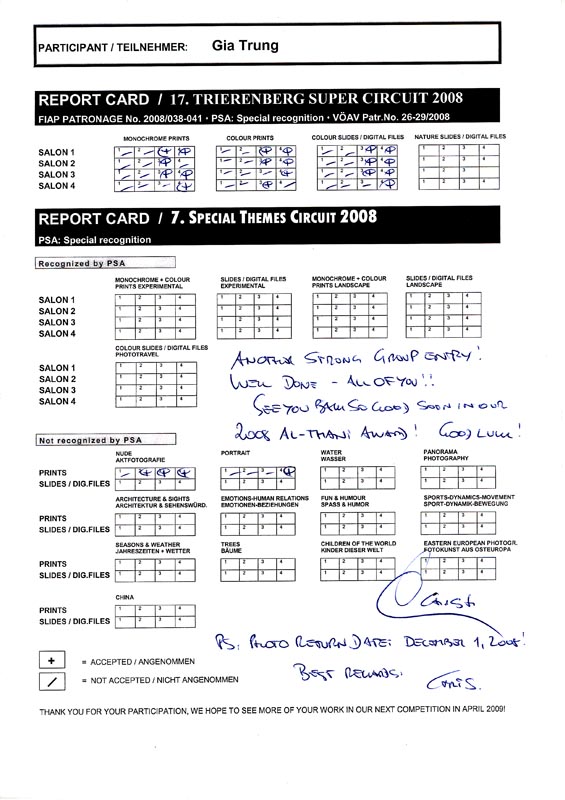 PARTICIPANT / TEILNEHMER: Gia Trung
REPORT CARD / 17. TRIERENBERG SUPER CIRCUIT 2008
FIAP PATRONAGE No. 2008/038-041 • PSA: Special recognition • VÖAV Patr.No. 26-29/2008
MONOCHROME PRINTS COLOUR PRINTS COLOUR SLIDES / DIGITAL FILES NATURE SLIDES / DIGITAL FILES
SALON 1 1 2 3 4 1 2 3 4 1 2 3 4 1 2 3 4
SALON 2 1 2 3 4 1 2 3 4 1 2 3 4 1 2 3 4
SALON 3 1 2 3 4 1 2 3 4 1 2 3 4 1 2 3 4
SALON 4 1 2 3 4 1 2 3 4 1 2 3 4 1 2 3 4
REPORT CARD / 7. SPECIAL THEMES CIRCUIT 2008
PSA: Special recognition
Recognized by PSA
MONOCHROME + COLOUR PRINTS EXPERIMENTAL SLIDES / DIGITAL FILES EXPERIMENTAL MONOCHROME + COLOUR PRINTS LANDSCAPE SLIDES / DIGITAL FILES LANDSCAPE
SALON 1 1 2 3 4 1 2 3 4 1 2 3 4 1 2 3 4
SALON 2 1 2 3 4 1 2 3 4 1 2 3 4 1 2 3 4
SALON 3 1 2 3 4 1 2 3 4 1 2 3 4 1 2 3 4
SALON 4 1 2 3 4 1 2 3 4 1 2 3 4 1 2 3 4
COLOUR SLIDES / DIGITAL FILES
PHOTOTRAVEL
SALON 1 1 2 3 4
SALON 2 1 2 3 4
SALON 3 1 2 3 4
SALON 4 1 2 3 4
ANOTHER STRONG GROUP ENTRY!
WELL DONE - ALL OF YOU!!
SEE YOU BACK SO GOOD SOON IN OUR
2008 AL-THANI AWARD! GOOD LUCK!
Not recognized by PSA
NUDE AKTFOTOGRAFIE PORTRAIT WATER WASSER PANORAMA PHOTOGRAPHY
PRINTS 1 2 3 4 1 2 3 4 1 2 3 4 1 2 3 4
SLIDES / DIG.FILES 1 2 3 4 1 2 3 4 1 2 3 4 1 2 3 4
ARCHITECTURE & SIGHTS ARCHITEKTUR & SEHENSWÜRD. EMOTIONS-HUMAN RELATIONS EMOTIONEN-BEZIEHUNGEN FUN & HUMOUR SPASS & HUMOR SPORTS-DYNAMICS-MOVEMENT SPORT-DYNAMIK-BEWEGUNG
PRINTS 1 2 3 4 1 2 3 4 1 2 3 4 1 2 3 4
SLIDES / DIG.FILES 1 2 3 4 1 2 3 4 1 2 3 4 1 2 3 4
SEASONS & WEATHER JAHRESZEITEN + WETTER TREES BÄUME CHILDREN OF THE WORLD KINDER DIESER WELT EASTERN EUROPEAN PHOTOGR. FOTOKUNST AUS OSTEUROPA
PRINTS 1 2 3 4 1 2 3 4 1 2 3 4 1 2 3 4
SLIDES / DIG.FILES 1 2 3 4 1 2 3 4 1 2 3 4 1 2 3 4
CHINA
PRINTS 1 2 3 4
SLIDES / DIG.FILES 1 2 3 4
PS: PHOTO RETURN DATE: DECEMBER 1, 2008!
BEST REGARDS:
CHRIS.
+ = ACCEPTED / ANGENOMMEN
/ = NOT ACCEPTED / NICHT ANGENOMMEN
THANK YOU FOR YOUR PARTICIPATION, WE HOPE TO SEE MORE OF YOUR WORK IN OUR NEXT COMPETITION IN APRIL 2009!